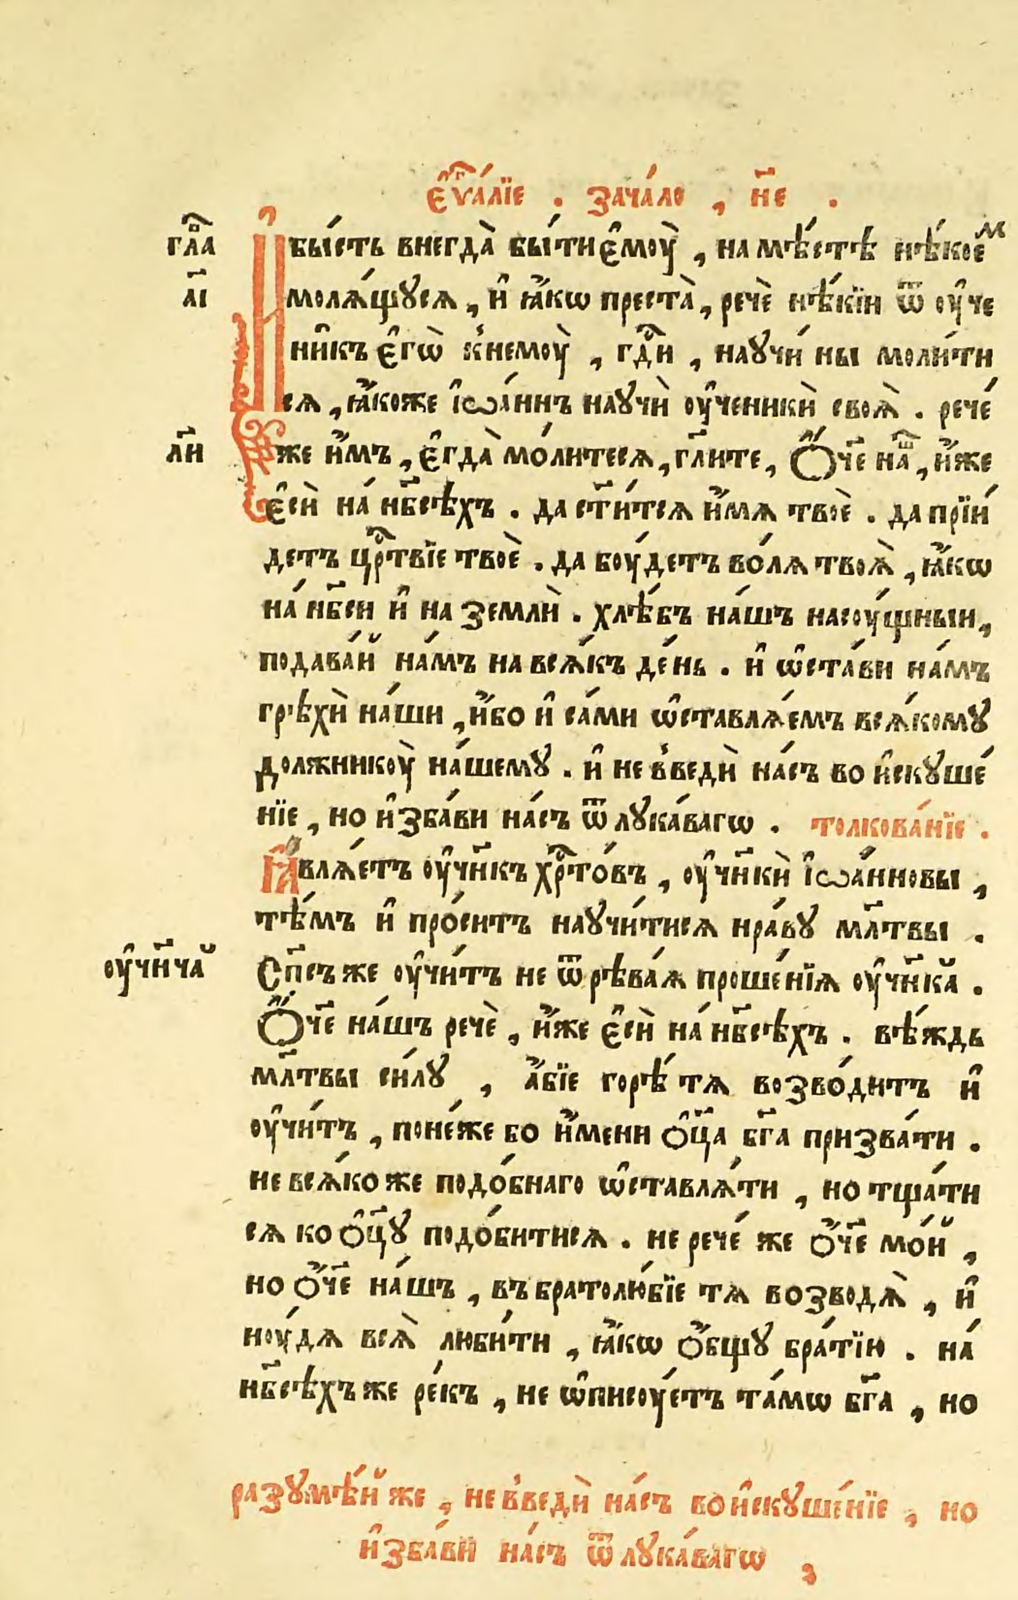 є҆ѵⷢ҇а́лїе . зача́ло , н҃е .
гла҃
И бы́сть внегда̀ бы́ти є҆моу̀ , на мѣ́стѣ́ нѣ́коеⷨ
а҃і
молѧ́щꙋсѧ , и҆ ꙗ҆́кѡ преста̀ , речѐ нѣ́кїи ѿ оу҆че
ни́къ є҆гѡ̀ к̾немоу̀ , гдⷭ҇и , наꙋчи́ ны моли́ти
сѧ , ꙗ҆́коже і҆ѡа́ннъ наꙋчѝ оу҆ченикѝ своѧ̀ . рече́
л҃и
же и҆̀мъ , є҆гда̀ мо́литесѧ , гл҃ите , Ѻ҆́ч҃е наⷲ҇ , и҆́же
є҆сѝ на́ нб҃сѣ́хъ . да ст҃и́тсѧ и҆́мѧ твоѐ . да прїи́
детъ црⷭ҇твїе твоѐ . да боу́детъ во́лѧ твоѧ̀ , ꙗ҆́кѡ
на́ нб҃си и҆ на землѝ . хлѣ́бъ на́шъ насоу́щныи ,
подава́й на́мъ на всѧ́къ де́нь . и҆ ѡ҆ста́ви на́мъ
грѣхѝ на́ши , и҆́бо и҆ са́ми ѡ҆ставлѧ́емъ всѧ́комꙋ
должникоу̀ на́шемꙋ . и҆ не в̾ведѝ на́съ во и҆скꙋше́
нїе , но и҆зба́ви на́съ ѿ лꙋка́вагѡ . толкова́нїе .
Ꙗ҆влѧ́етъ оу҆чн҃къ хрⷭ҇то́въ , оу҆чн҃кѝ і҆ѡа́нновы ,
тѣ́мъ и҆ про́ситъ наꙋчи́тисѧ нра́вꙋ мл҃твы .
оу҆чн҃чӑ
Сп҃съ же оу҆чи́тъ не ѿрѣва́ѧ проше́нїѧ оу҆чн҃кӑ .
Ѻ҆́ч҃е на́шъ речѐ , и҆́же є҆сѝ на́ нб҃сѣ́хъ . вѣ́ждь
мл҃твы си́лꙋ , а҆́бїе горѣ́ тѧ возво́дитъ и҆
оу҆чи́тъ , поне́же бо и҆́мени ѻ҆ц҃а̀ бг҃а призва́ти .
не всѧ́ко же подо́бнаго ѡ҆ставлѧ́ти , но тща́ти
сѧ ко ѻ҆ц҃ꙋ̀ подо́битисѧ . не рече́ же ѻ҆́ч҃е мо́й ,
но ѻ҆́ч҃е на́шъ , въ братолю́бїе тѧ возводѧ̀ , и҆
ноу́дѧ всѧ̀ люби́ти , ꙗ҆́кѡ ѻ҆́бщꙋ бра́тїю . на́
нб҃сѣ́хъ же ре́къ , не ѡ҆писоу́етъ та́мѡ бг҃а , но
разꙋмѣ́й же , не в̾ведѝ на́съ во и҆скꙋше́нїе , но
и҆зба́ви на́съ ѿ лꙋка́вагѡ
з